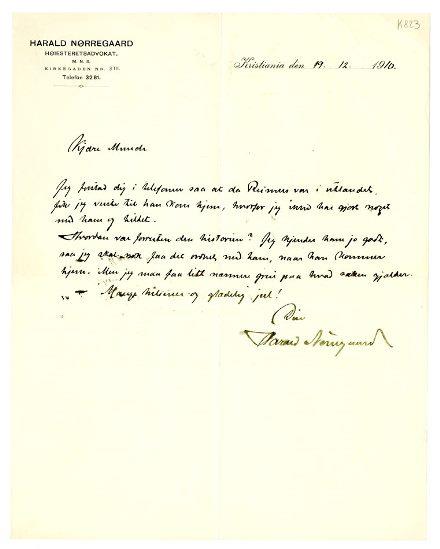 K 823
HARALD NØRREGAARD
HØIESTERETSADVOKAT.
M. N. S.
KIRKEGADEN NO.
Telefon 3281.
Kristiania den 19. 12 1910.
Kjære Munch
Jeg forstod dig i telefonen saa at da Reimers var i utlandet,
fik jeg vente til han kom hjem, hvorfor jeg intet har gjort noget
med ham og
Hvordan var forresten den historien? Jeg kjender ham jo godt,
saa jeg skal nok faa det ordnet med ham, naar han kommer
hjem. Men jeg maa faa litt nærmere greie paa hvad saken gjælder.
Mange hilsener og glædelig jul!
Din
Harald Nørregaard